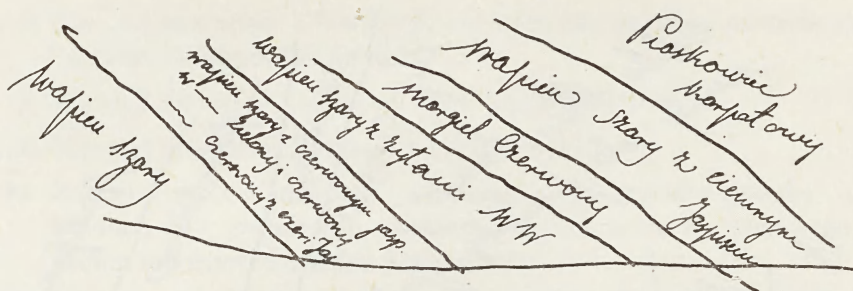 wapień szary
wapień szary z czerwonym jasp.
w — zielony i czerwony
— czerwony z czer. jas
wapień szary z żyłami WW
margiel czerwony
wapień szary z ciemnym
jaspisem
Piaskowiec
karpatowy